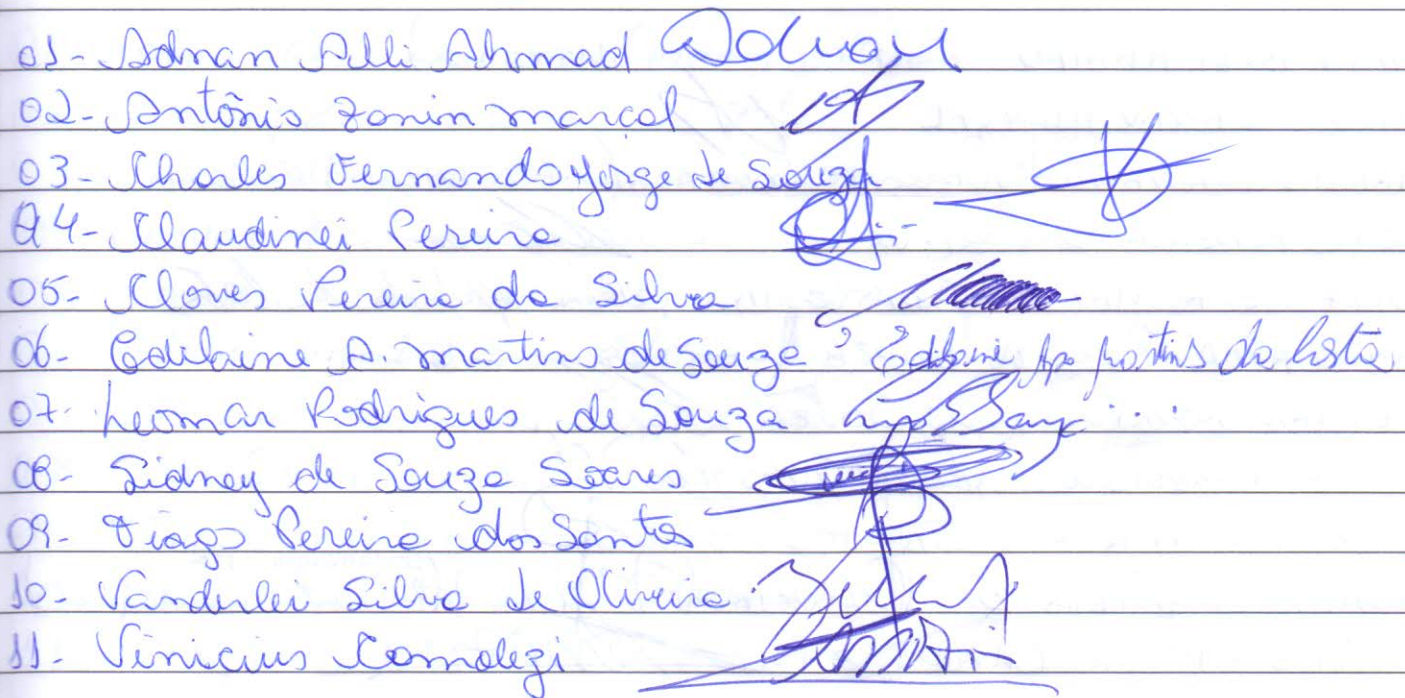 01- Adnan Alli Ahmad Adnan
02- Antônio Zonin Marçal
03- Charles Fernando Jorge de Souza
04- Claudinei Pereira
05- Cloves Pereira da Silva
06- Edilaine A. Martins de Souza Edilaine Apª Martins da Costa
07- Leomar Rodrigues de Souza
08- Sidney de Souza Soares
09- Tiago Pereira dos Santos
10- Vanderlei Silva de Oliveira
11- Vinicius Comolezi